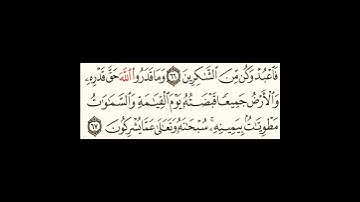 فَٱعْبُدْ وَكُن مِّنَ ٱلشَّـٰكِرِينَ ٦٦ وَمَا قَدَرُوا۟ ٱللَّهَ حَقَّ قَدْرِهِۦ
وَٱلْأَرْضُ جَمِيعًا قَبْضَتُهُۥ يَوْمَ ٱلْقِيَـٰمَةِ وَٱلسَّمَـٰوَٰتُ
مَطْوِيَّـٰتٌۢ بِيَمِينِهِۦ ۚ سُبْحَـٰنَهُۥ وَتَعَـٰلَىٰ عَمَّا يُشْرِكُونَ ٦٧